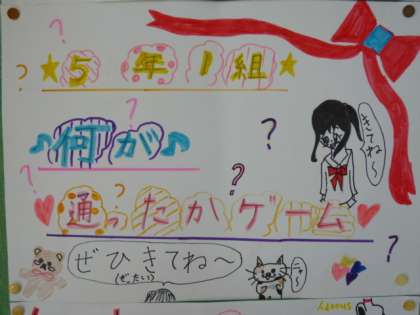 5年1組
何が
通ったかゲーム
きてね〜
ぜひきてね〜
(ぜったい)
ニャ〜